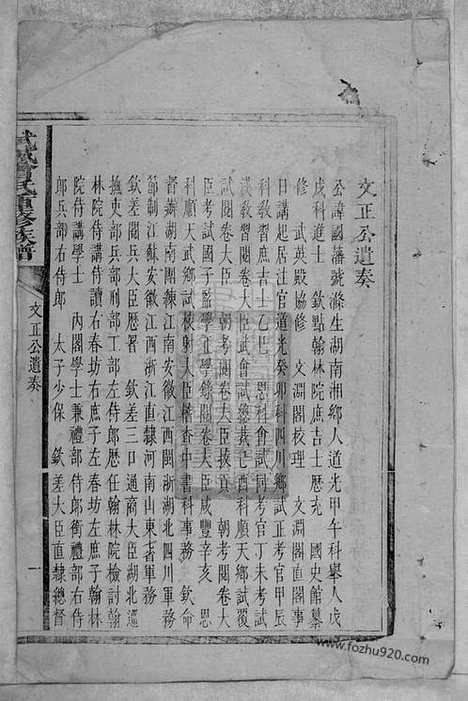 文正公遺奏
公諱國藩號滌生湖南湘鄉人道光甲午科舉人戊
戌科進士 欽點翰林院庶吉士歷充 國史館纂
修 武英殿協修 文淵閣校理 文淵閣直閣事
日講起居注官道光癸卯科四川鄉試正考官甲辰
科教習庶吉士乙巳 恩科會試同考官丁未考試
漢教習閱卷大臣武會試總裁己酉科順天鄉試覆
試閱卷大臣 朝考閱卷大臣拔貢 朝考閱卷大
臣考試國子監學正學錄閱卷大臣咸豐辛亥 恩
科順天武鄉試校射大臣稽查中書科事務 欽命
督辦湖南團練江南安徽江西閩浙湖北四川軍務
節制江蘇安徽江西浙江直隸河南山東省軍務
欽差閱兵大臣歷署 欽差三口通商大臣湖北巡
撫吏部兵部刑部工部左侍郎歷任翰林院檢討翰
林院侍講侍讀右春坊右庶子左春坊左庶子翰林
院侍講學士 內閣學士兼禮部侍郎銜禮部右侍
郎兵部右侍郎 太子少保 欽差大臣直隸總督
武城曾氏重修族譜
文正公遺奏
一
www.fozhu920.com